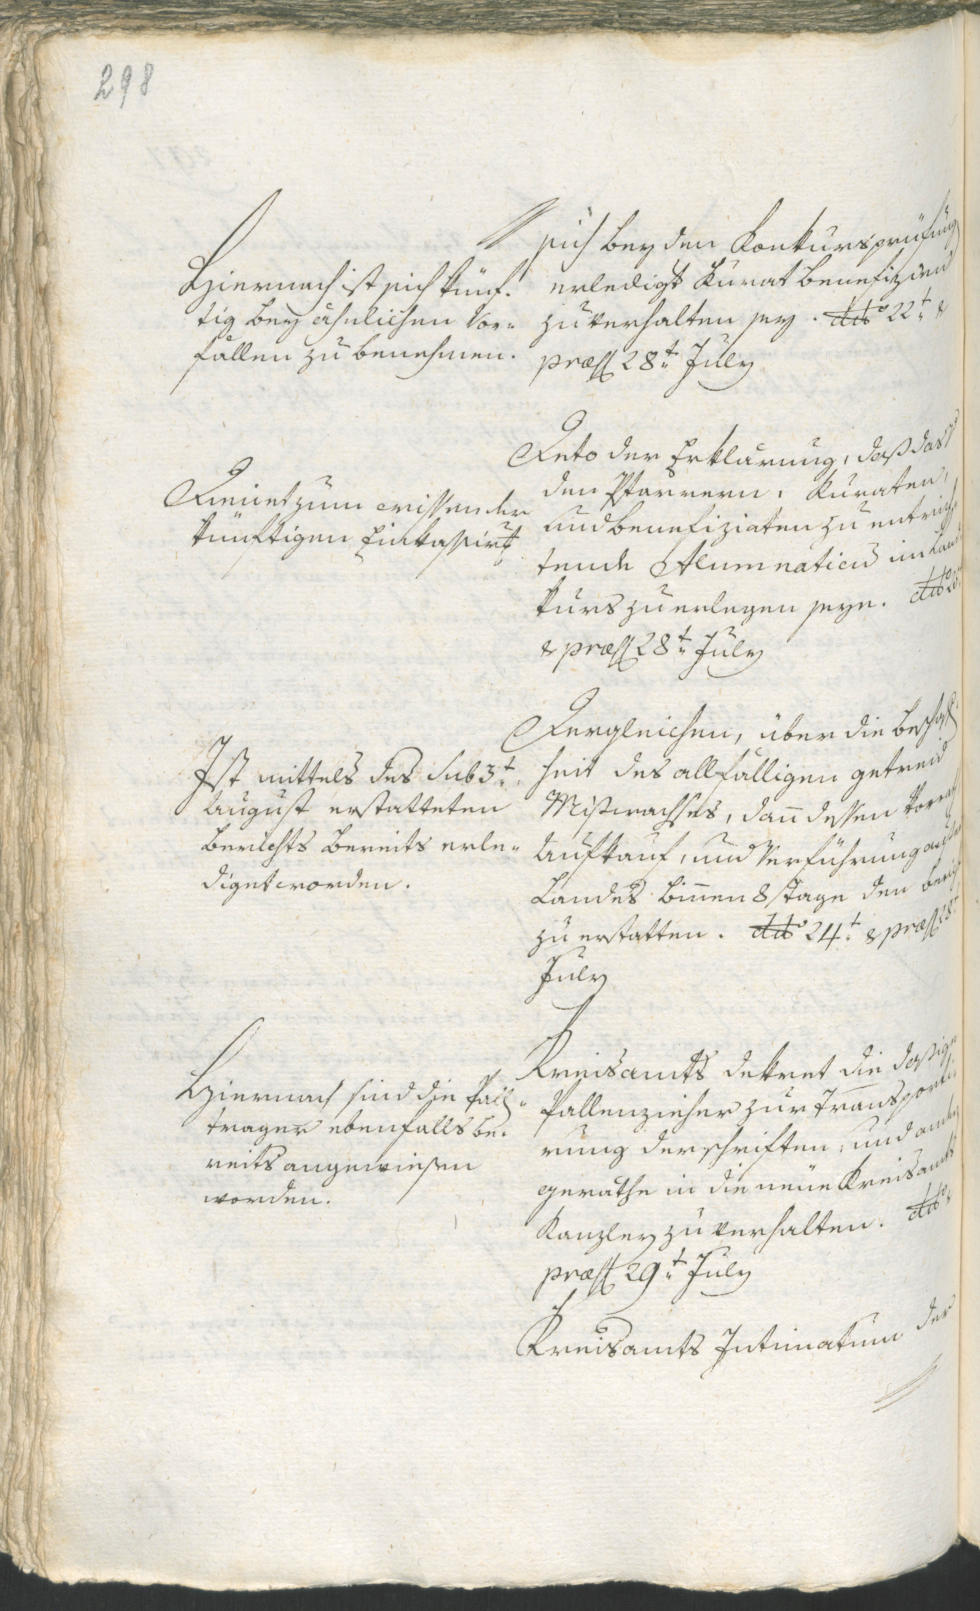 298
Hiernach ist sich künf-
tig bey ähnlichen Vor-
fällen zu benehmen.
sich bey den Konkursprüfung
erledigt Kurat Benefizien
zu verhalten sey. ddo 22t &
præs 28t July
Dienet zum wissen der
künftigen Einkassir
Deto der Erklärung, daß das
den Pfarrern, Kuraten,
und Benefiziaten zu entrich
tende Alumnaticum im Kon
kurs zu erlegen seye. ddo
& præs 28t July
Ist mittels des sub 3t
August erstatteten
Berichts bereits erle-
diget worden.
Dergleichen, über die Beschaf
heit des allfälligen getreid
Mißwachses, dann dessen Vorrath
Aufkauf, und Verführung aus
Landes binnen 8 Tage den Bericht
zu erstatten. ddo 24t & præs 28t
July
Hiernach sind die Pall
trager ebenfalls be-
reits angewiesen
worden.
Kreisamts dekret die dasige
Pallenzieher zur Transporti
rung der schriften, und ander
geräthe in die neue Kreisamts
Kanzley zu verhalten. ddo &
præs 29t July
Kreisamts Intimatum der